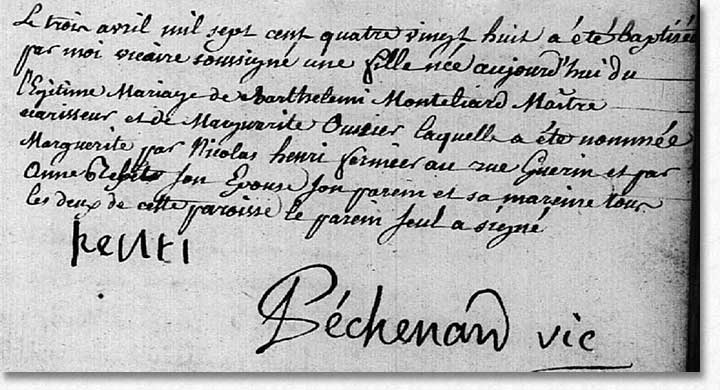 Le trois avril mil sept cent quatre vingt huit a été baptisée
par moi vicaire soussigné une fille née aujourd'hui du
légitime Mariage de Barthelemi Monteliard Maître
et de Marguerite laquelle a été nommée
Marguerite par Nicolas henri fermier au rue Guerin et par
Anne son Epouse son parein et sa mareine tous
les deux de cette paroisse le parein seul a signé
henri
Béchenard vic